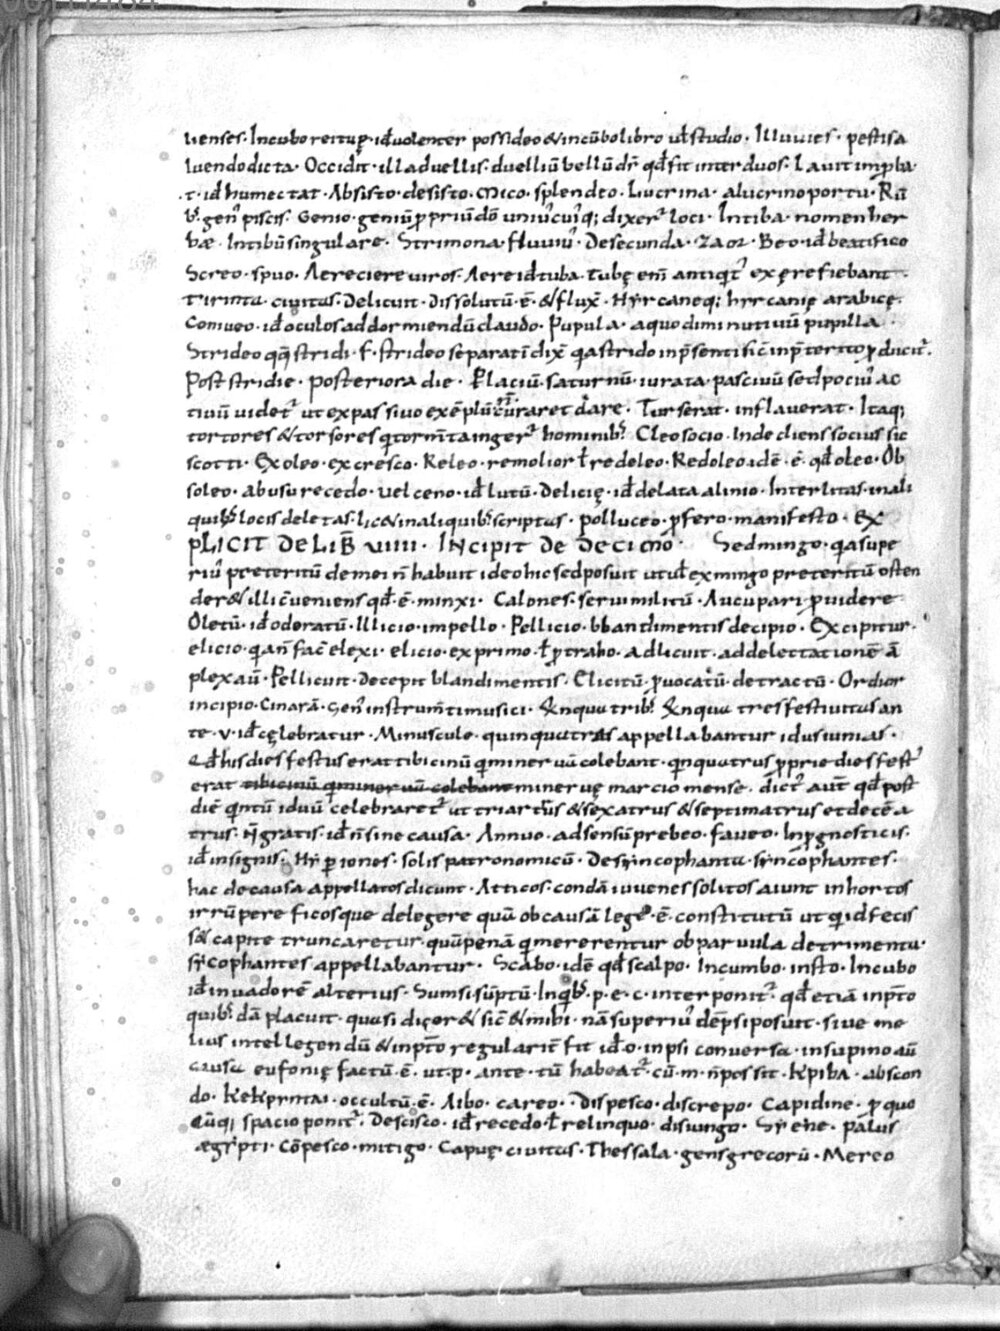 uenses · Incubo reiturꝑ · id̄ uolenter possideo & incūbo libro ut̄ studio · Illuuies · pestis a
luendo dicta · Occidit · illa duellis · duelliū bellū dr̄ qd̄ fit inter duos · Lauit imꝓba
t · id̄ humectat · Absisto · desisto · Mico · splendeo · Lucrina · a lucrino portu · Rū
b᾿ gen᾿ piscis · Genio · geniū ꝓpriū dō uniu᾿cui᾿q; dixer᾿ loci · Intiba · nomen her
bæ · Intibū singulare · Strimona · fluuiū᾿ · De secunda · Beo · id̄ beatifico
Screo · spuo · Aere ciere uiros · Aere id tuba · tubę em̄ antiqt᾿ ex ęre fiebant ·
Tirinta · ciuitas · Delicuit · dissolutū · ē · & flux̄ · Hyrcaneq; hyrcanię arabicę ·
Coniueo · id̄ oculos ad dormiendū claudo · Pupula · a quo diminutiuū pupilla
Strideo qq̄ stridi · f · strideo separatī dix̄ qa strido in p̄senti sic̄ in p̄terito ꝓducit᾿ ·
Post stridie · posteriora die · Placiū · saturnū · iurata · pasciuū sed pociu᾿ ac
tiuū uidet᾿ ut ex passiuo exēplū · iuraret dare · Turserat · inflauerat · Itaq;
tortores & torsores q tormīta inger᾿ hominib᾿ · Cleo socio · Inde cliens socius sic
scotti · Exoleo · excresco · Releo · remolior t̄ redeleo · Redoleo idē · ē · qd̄ oleo · Ob
soleo · abusu recedo · uel ceno · id̄ lutū · Delicię · id̄ delata alinio · Interlitas · inali
quib᾿ locis deletas · lic& inaliquib᾿ scriptas · polluceo · ꝓfero · manifesto · EX
PLICIT DE LIB̄ VIIII · INCIPIT DE DECIMO · Sed mingo · qa supe
riu᾿ preteritū de meio n̄ habuit ideo hic sed posuit ut ut̄ ex mingo preteritū osten
der& illi c̄ueniens qd̄ · ē · minxi · Calones · serui militū · Aucupari ꝓuidere ·
Oletū · id̄ odoratū · Illicio · impello · Pellicio · blandimentis decipio · Excipitur ·
elicio · q an̄ fac̄ elexi · elicio · exprimo · t̄ ꝓtraho · adlicuit · ad delectationē ā
plexaū᾿ · Pellicuit · decepit blandimentis · Elicitū · ꝓuocatū · detractū · Ordior
incipio · Cinarā · gen᾿ instrum̄ti musici · &nqua trib᾿ &nqua tres festiuitas an
te · v · id᾿ cęlebratur · Minuscule · quinquatras appellabantur idus iunias ·
qd̄ his dies festus erat tibicinū q miner uā colebant · qnquatrus ꝓprie dies fest᾿
erat tibicinū q miner uā colebant mineruę marcio mense · dict᾿ aut̄ qd̄ post
diē qntū iduū celebraret᾿ ut triatr̄us & sexatrus & septimatrus et decē a
trus · N̄ gratis · id̄ n̄ sine causa · Annuo · adsensū prebeo · faueo · In ꝓgnosticis ·
id̄ in signis · Hyꝑiones · solis patronomicū · De syncophanta · syncophantes ·
hac de causa appellatos dicunt · Atticos · condā iuuenes solitos aiunt in hortos
irrūpere ficosque delegere quā ob causā lege · ē · constitutū ut q id fecis
s& capite truncaretur · quā penā q mererentur ob paruula detrimenta ·
sycophantes appellabantur · Scabo · idē qd̄ scalpo · Incumbo · insto · Incubo
id̄ inuadorē alterius · Sumsi · sūptū · In qb᾿ · p · e · c · interponit᾿ · qd̄ etiā in pt̄o
quib᾿dā placuit · quasi diçer& sic̄ & mihi · nā superiu᾿ dēpsi posuit · siue me
lius intellegendū & in pt̄o regularit̄ fit id̄ · o · in psi conuersa · in supino aū
causa eufonię factū · ē · ut · p · ante · tū habeat᾿ · cū · m · n̄ possit · Kriba · abscon
do · KeKpyntai · occultū · ē · Λibo · careo · Dispesco · discrepo · Capidine · ꝓ quo
cūq; spacio ponit᾿ · Descisco · id̄ recedo · t̄ relinquo · disiungo · Syene · palus
ægypti · Cōpesco · mitigo · Capuę ciuitas · Thessala · gens grecorū · Mereo